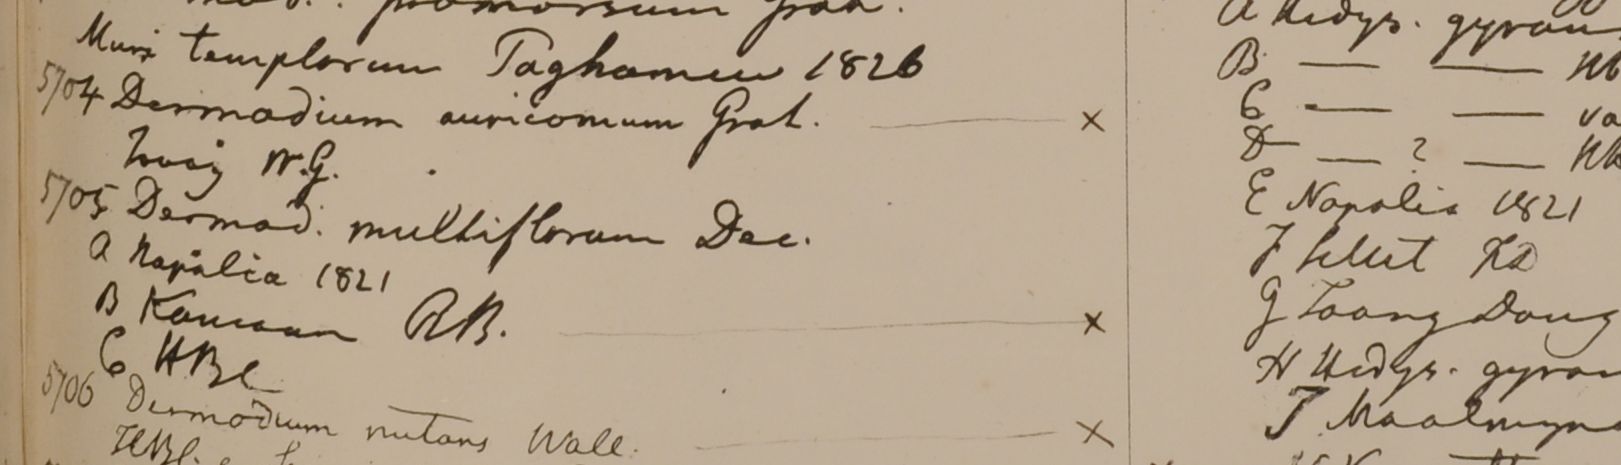 promorsum Grah.
Muri templorum Taghamew 1826
5704 Dermodium auricomum Grah. x
W.G.
5705 Dermod. multiflorum Dec.
a Napalia 1821
B Kamaon RB. x
C HBC
5706 Dermodium nutans Wall. x
HBC.
a Hedys. gyran
B — —
C — — va
D — ? —
E Napalia 1821
F Silhet FD
G Toong Dong
H Hedys. gyran
J